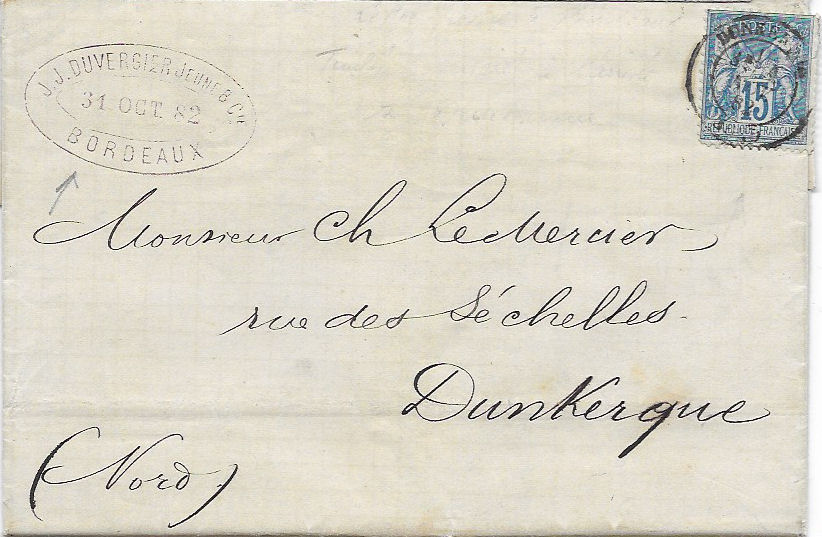 J.J. DUVERGIER JEUNE & Cie
31 OCT. 82
BORDEAUX
DUNKER
15
REPUBLIQUE FRANCAISE
Monsieur Ch LeMercier
rue des Séchelles.
Dunkerque
(Nord)